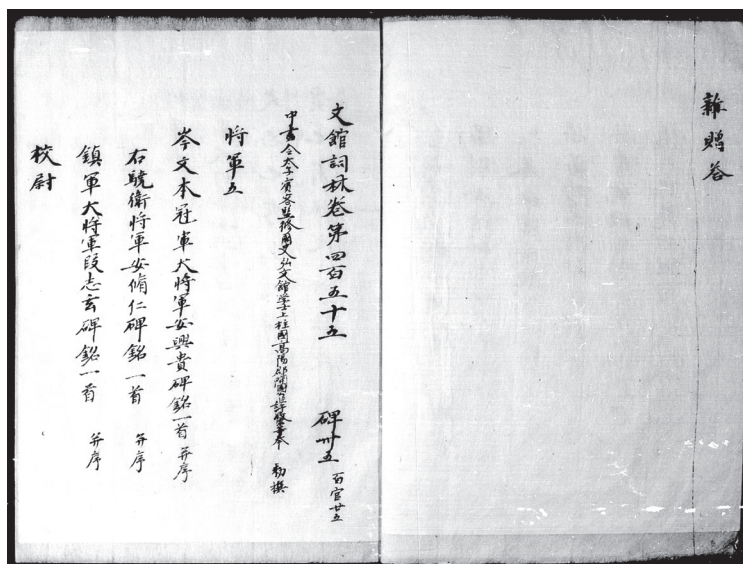 雜贈答
文館詞林卷第四百五十五 碑卅五 百官廿五
中書令太子賓客監修國史弘文館學士上柱國高陽郡開國臣許敬宗奉 勅撰
將軍五
岑文本冠軍大將軍安興貴碑銘一首 并序
右驍衛將軍安脩仁碑銘一首 并序
鎮軍大將軍段志玄碑銘一首 并序
校尉